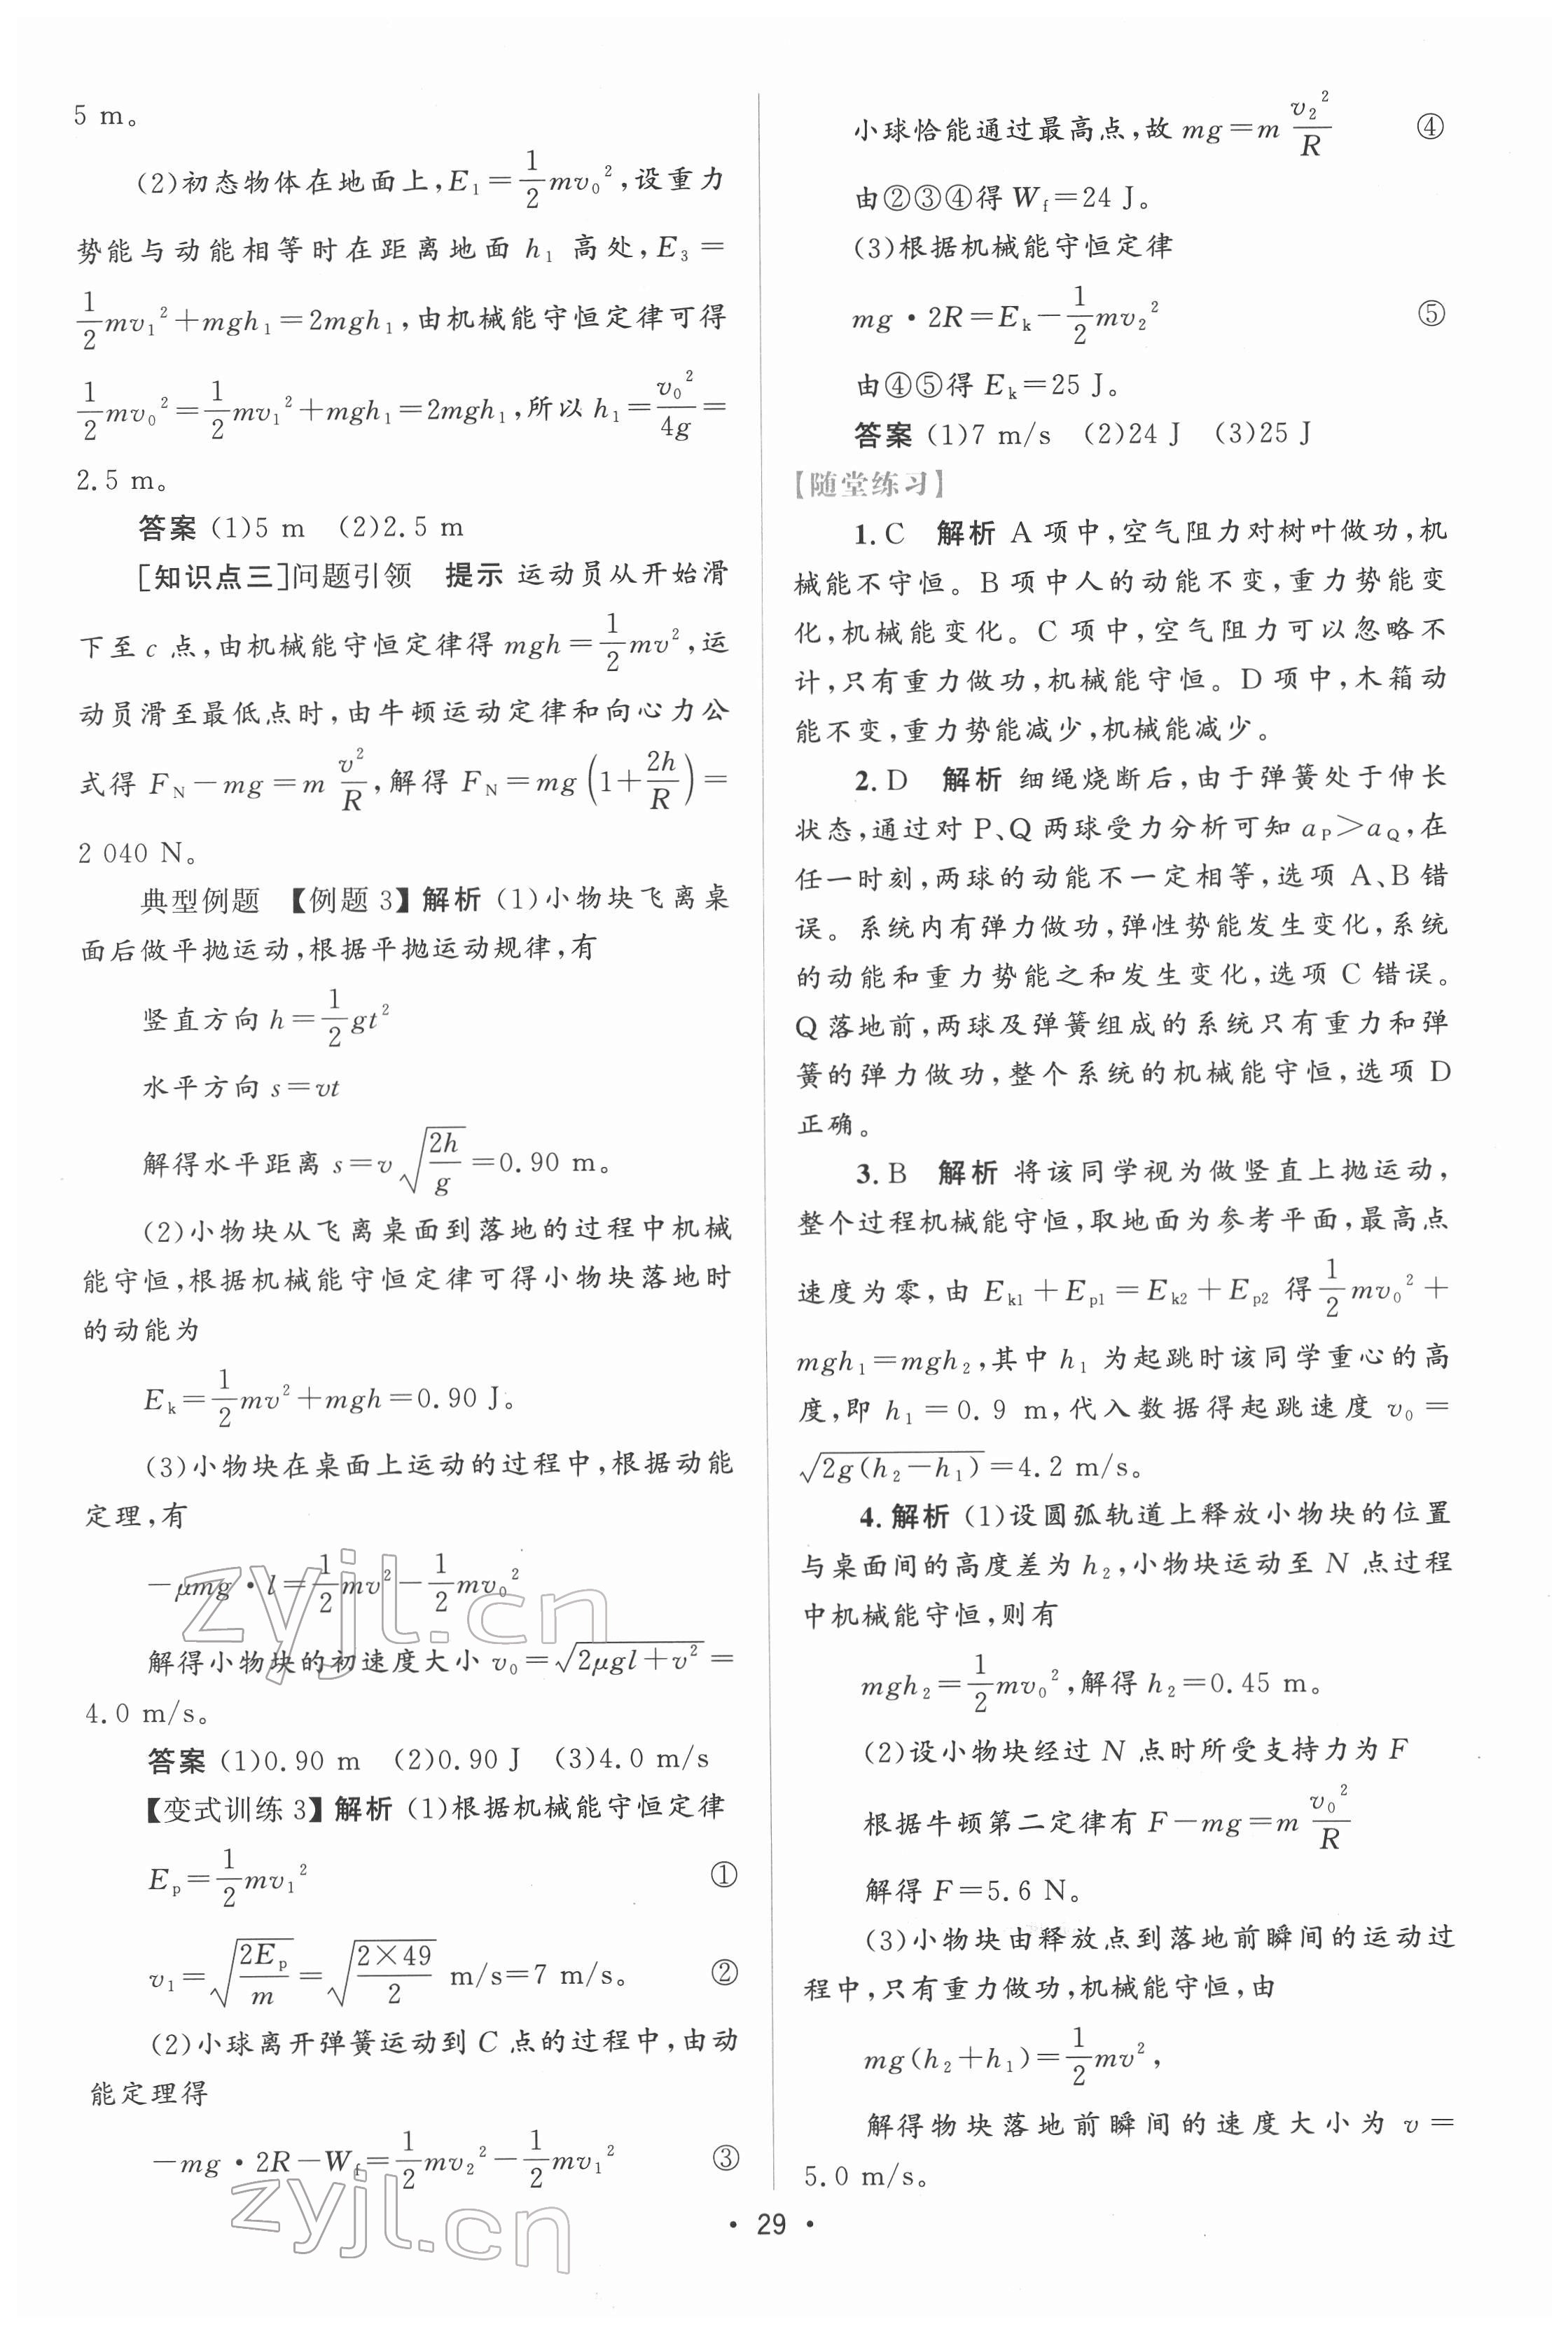 5 m。
(2)初态物体在地面上,E₁=\frac{1}{2}mv₀²,设重力
势能与动能相等时在距离地面 h₁ 高处,E₃=
\frac{1}{2}mv₁²+mgh₁=2mgh₁,由机械能守恒定律可得
\frac{1}{2}mv₀²=\frac{1}{2}mv₁²+mgh₁=2mgh₁,所以 h₁=\frac{v₀²}{4g}=
2.5 m。
答案 (1)5 m (2)2.5 m
[知识点三]问题引领 提示 运动员从开始滑
下至 c 点,由机械能守恒定律得 mgh=\frac{1}{2}mv²,运
动员滑至最低点时,由牛顿运动定律和向心力公
式得 F_N-mg=m\frac{v²}{R},解得 F_N=mg(1+\frac{2h}{R})=
2 040 N。
典型例题 【例题 3】解析 (1)小物块飞离桌
面后做平抛运动,根据平抛运动规律,有
竖直方向 h=\frac{1}{2}gt²
水平方向 s=vt
解得水平距离 s=v\sqrt{\frac{2h}{g}}=0.90 m。
(2)小物块从飞离桌面到落地的过程中机械
能守恒,根据机械能守恒定律可得小物块落地时
的动能为
E_k=\frac{1}{2}mv²+mgh=0.90 J。
(3)小物块在桌面上运动的过程中,根据动能
定理,有
-μmg·l=\frac{1}{2}mv²-\frac{1}{2}mv₀²
解得小物块的初速度大小 v₀=\sqrt{2μgl+v²}=
4.0 m/s。
答案 (1)0.90 m (2)0.90 J (3)4.0 m/s
【变式训练 3】解析 (1)根据机械能守恒定律
E_p=\frac{1}{2}mv₁² ①
v₁=\sqrt{\frac{2E_p}{m}}=\sqrt{\frac{2×49}{2}} m/s=7 m/s。 ②
(2)小球离开弹簧运动到 C 点的过程中,由动
能定理得
-mg·2R-W_f=\frac{1}{2}mv₂²-\frac{1}{2}mv₁² ③
小球恰能通过最高点,故 mg=m\frac{v₂²}{R} ④
由②③④得 W_f=24 J。
(3)根据机械能守恒定律
mg·2R=E_k-\frac{1}{2}mv₂² ⑤
由④⑤得 E_k=25 J。
答案 (1)7 m/s (2)24 J (3)25 J
【随堂练习】
1.C 解析 A 项中,空气阻力对树叶做功,机
械能不守恒。B 项中人的动能不变,重力势能变
化,机械能变化。C 项中,空气阻力可以忽略不
计,只有重力做功,机械能守恒。D 项中,木箱动
能不变,重力势能减少,机械能减少。
2.D 解析 细绳烧断后,由于弹簧处于伸长
状态,通过对 P、Q 两球受力分析可知 a_P>a_Q,在
任一时刻,两球的动能不一定相等,选项 A、B 错
误。系统内有弹力做功,弹性势能发生变化,系统
的动能和重力势能之和发生变化,选项 C 错误。
Q 落地前,两球及弹簧组成的系统只有重力和弹
簧的弹力做功,整个系统的机械能守恒,选项 D
正确。
3.B 解析 将该同学视为做竖直上抛运动,
整个过程机械能守恒,取地面为参考平面,最高点
速度为零,由 E_{k1}+E_{p1}=E_{k2}+E_{p2} 得\frac{1}{2}mv₀²+
mgh₁=mgh₂,其中 h₁ 为起跳时该同学重心的高
度,即 h₁=0.9 m,代入数据得起跳速度 v₀=
\sqrt{2g(h₂-h₁)}=4.2 m/s。
4.解析 (1)设圆弧轨道上释放小物块的位置
与桌面间的高度差为 h₂,小物块运动至 N 点过程
中机械能守恒,则有
mgh₂=\frac{1}{2}mv₀²,解得 h₂=0.45 m。
(2)设小物块经过 N 点时所受支持力为 F
根据牛顿第二定律有 F-mg=m\frac{v₀²}{R}
解得 F=5.6 N。
(3)小物块由释放点到落地前瞬间的运动过
程中,只有重力做功,机械能守恒,由
mg(h₂+h₁)=\frac{1}{2}mv²,
解得物块落地前瞬间的速度大小为 v=
5.0 m/s。
zyjl.cn
zyjl.cn
·29·